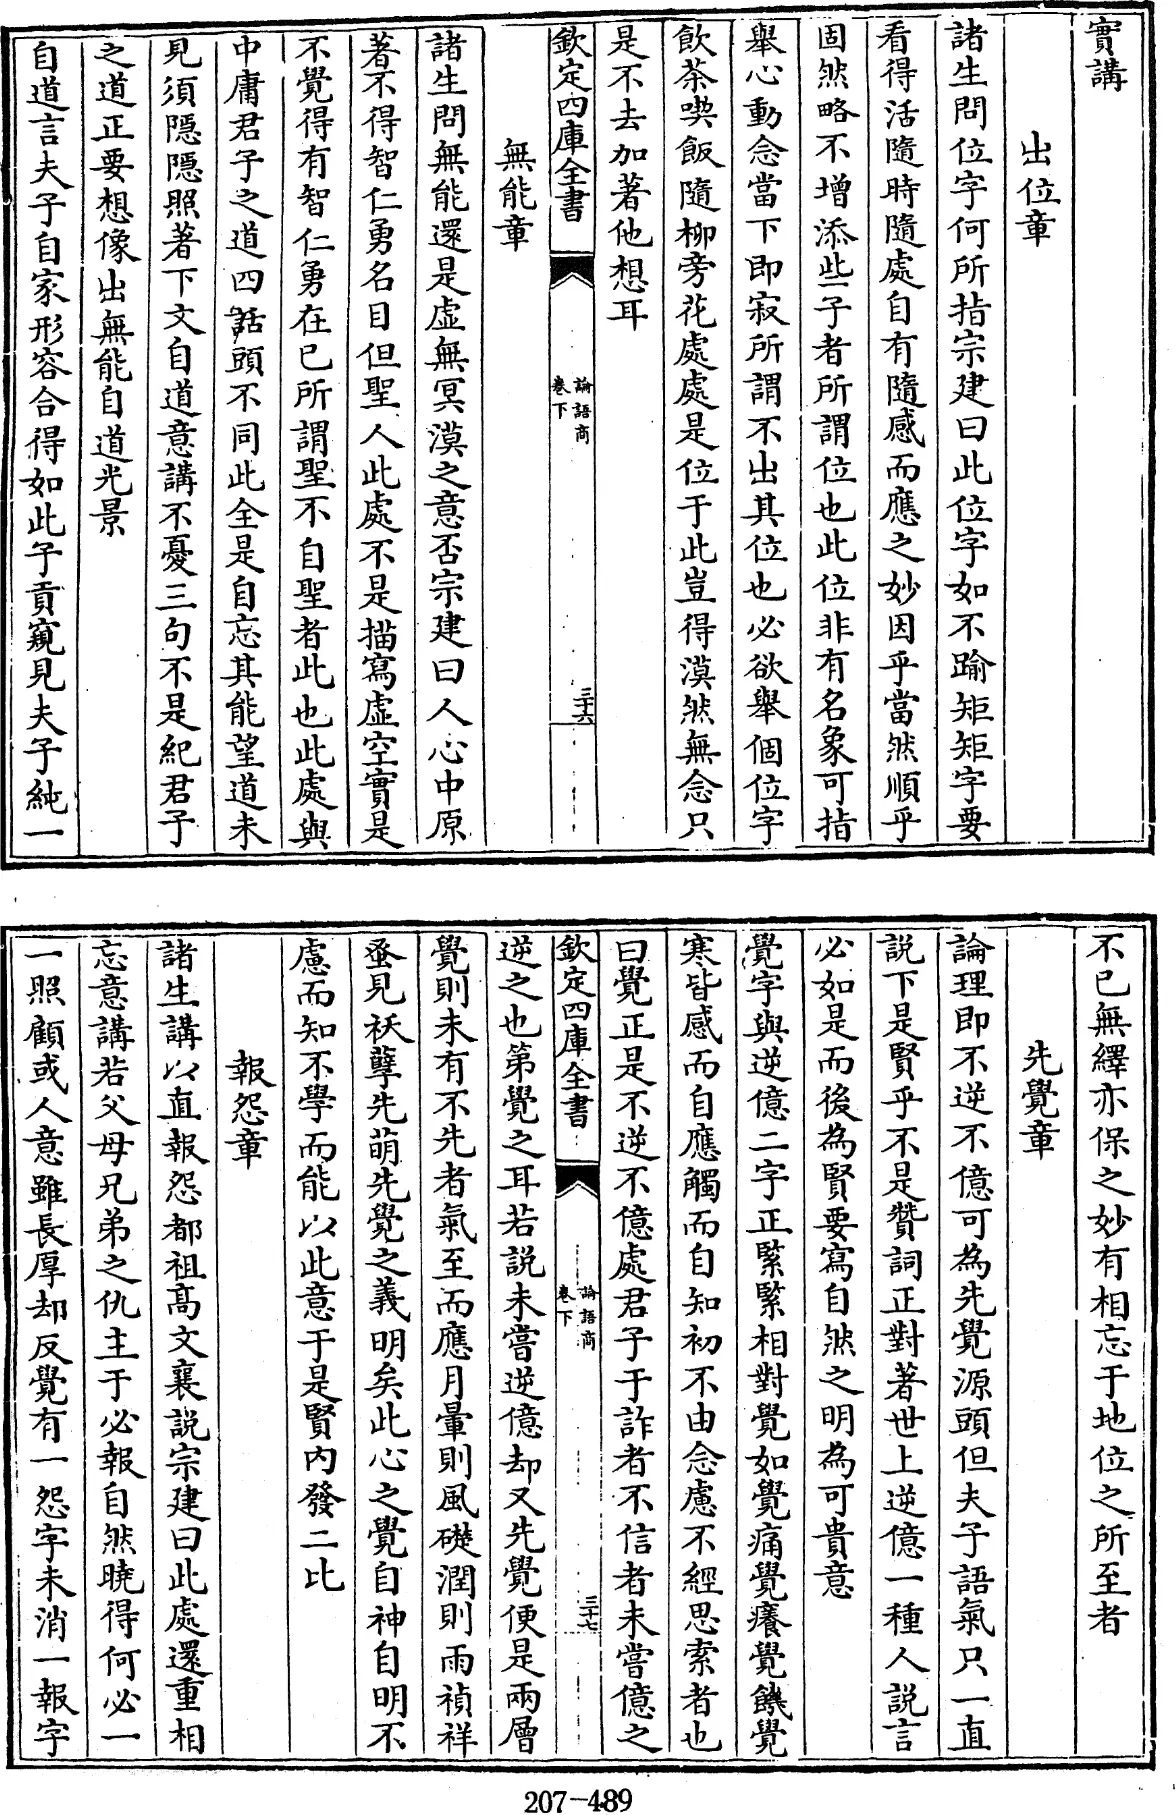 實講
出位章
諸生問位字何所指宗建曰此位字如不踰矩矩字要
看得活隨時隨處自有隨感而應之妙因乎當然順乎
固然略不增添些子者所謂位也此位非有名象可指
舉心動念當下即寂所謂不出其位也必欲舉個位字
飲茶喫飯隨柳旁花處處是位于此豈得漠然無念只
是不去加著他想耳
欽定四庫全書
論語商
卷下
三十六
無能章
諸生問無能還是虛無冥漠之意否宗建曰人心中原
著不得智仁勇名目但聖人此處不是描寫虛空實是
不覺得有智仁勇在已所謂聖不自聖者此也此處與
中庸君子之道四話頭不同此全是自忘其能望道未
見須隱隱照著下文自道意講不憂三句不是紀君子
之道正要想像出無能自道光景
自道言夫子自家形容合得如此子貢窺見夫子純一
不已無繹亦保之妙有相忘于地位之所至者
先覺章
論理即不逆不億可為先覺源頭但夫子語氣只一直
說下是賢乎不是贊詞正對著世上逆億一種人說言
必如是而後為賢要寫自然之明為可貴意
覺字與逆億二字正緊緊相對覺如覺痛覺癢覺饑覺
寒皆感而自應觸而自知初不由念慮不經思索者也
曰覺正是不逆不億處君子于詐者不信者未嘗億之
欽定四庫全書
論語商
卷下
三十七
逆之也第覺之耳若說未嘗逆億却又先覺便是兩層
覺則未有不先者氣至而應月暈則風礎潤則雨禎祥
蚤見祅孽先萌先覺之義明矣此心之覺自神自明不
慮而知不學而能以此意于是賢內發二比
報怨章
諸生講以直報怨都祖高文襄說宗建曰此處還重相
忘意講若父母兄弟之仇主于必報自然曉得何必一
一照顧或人意雖長厚却反覺有一怨字未消一報字
207-489